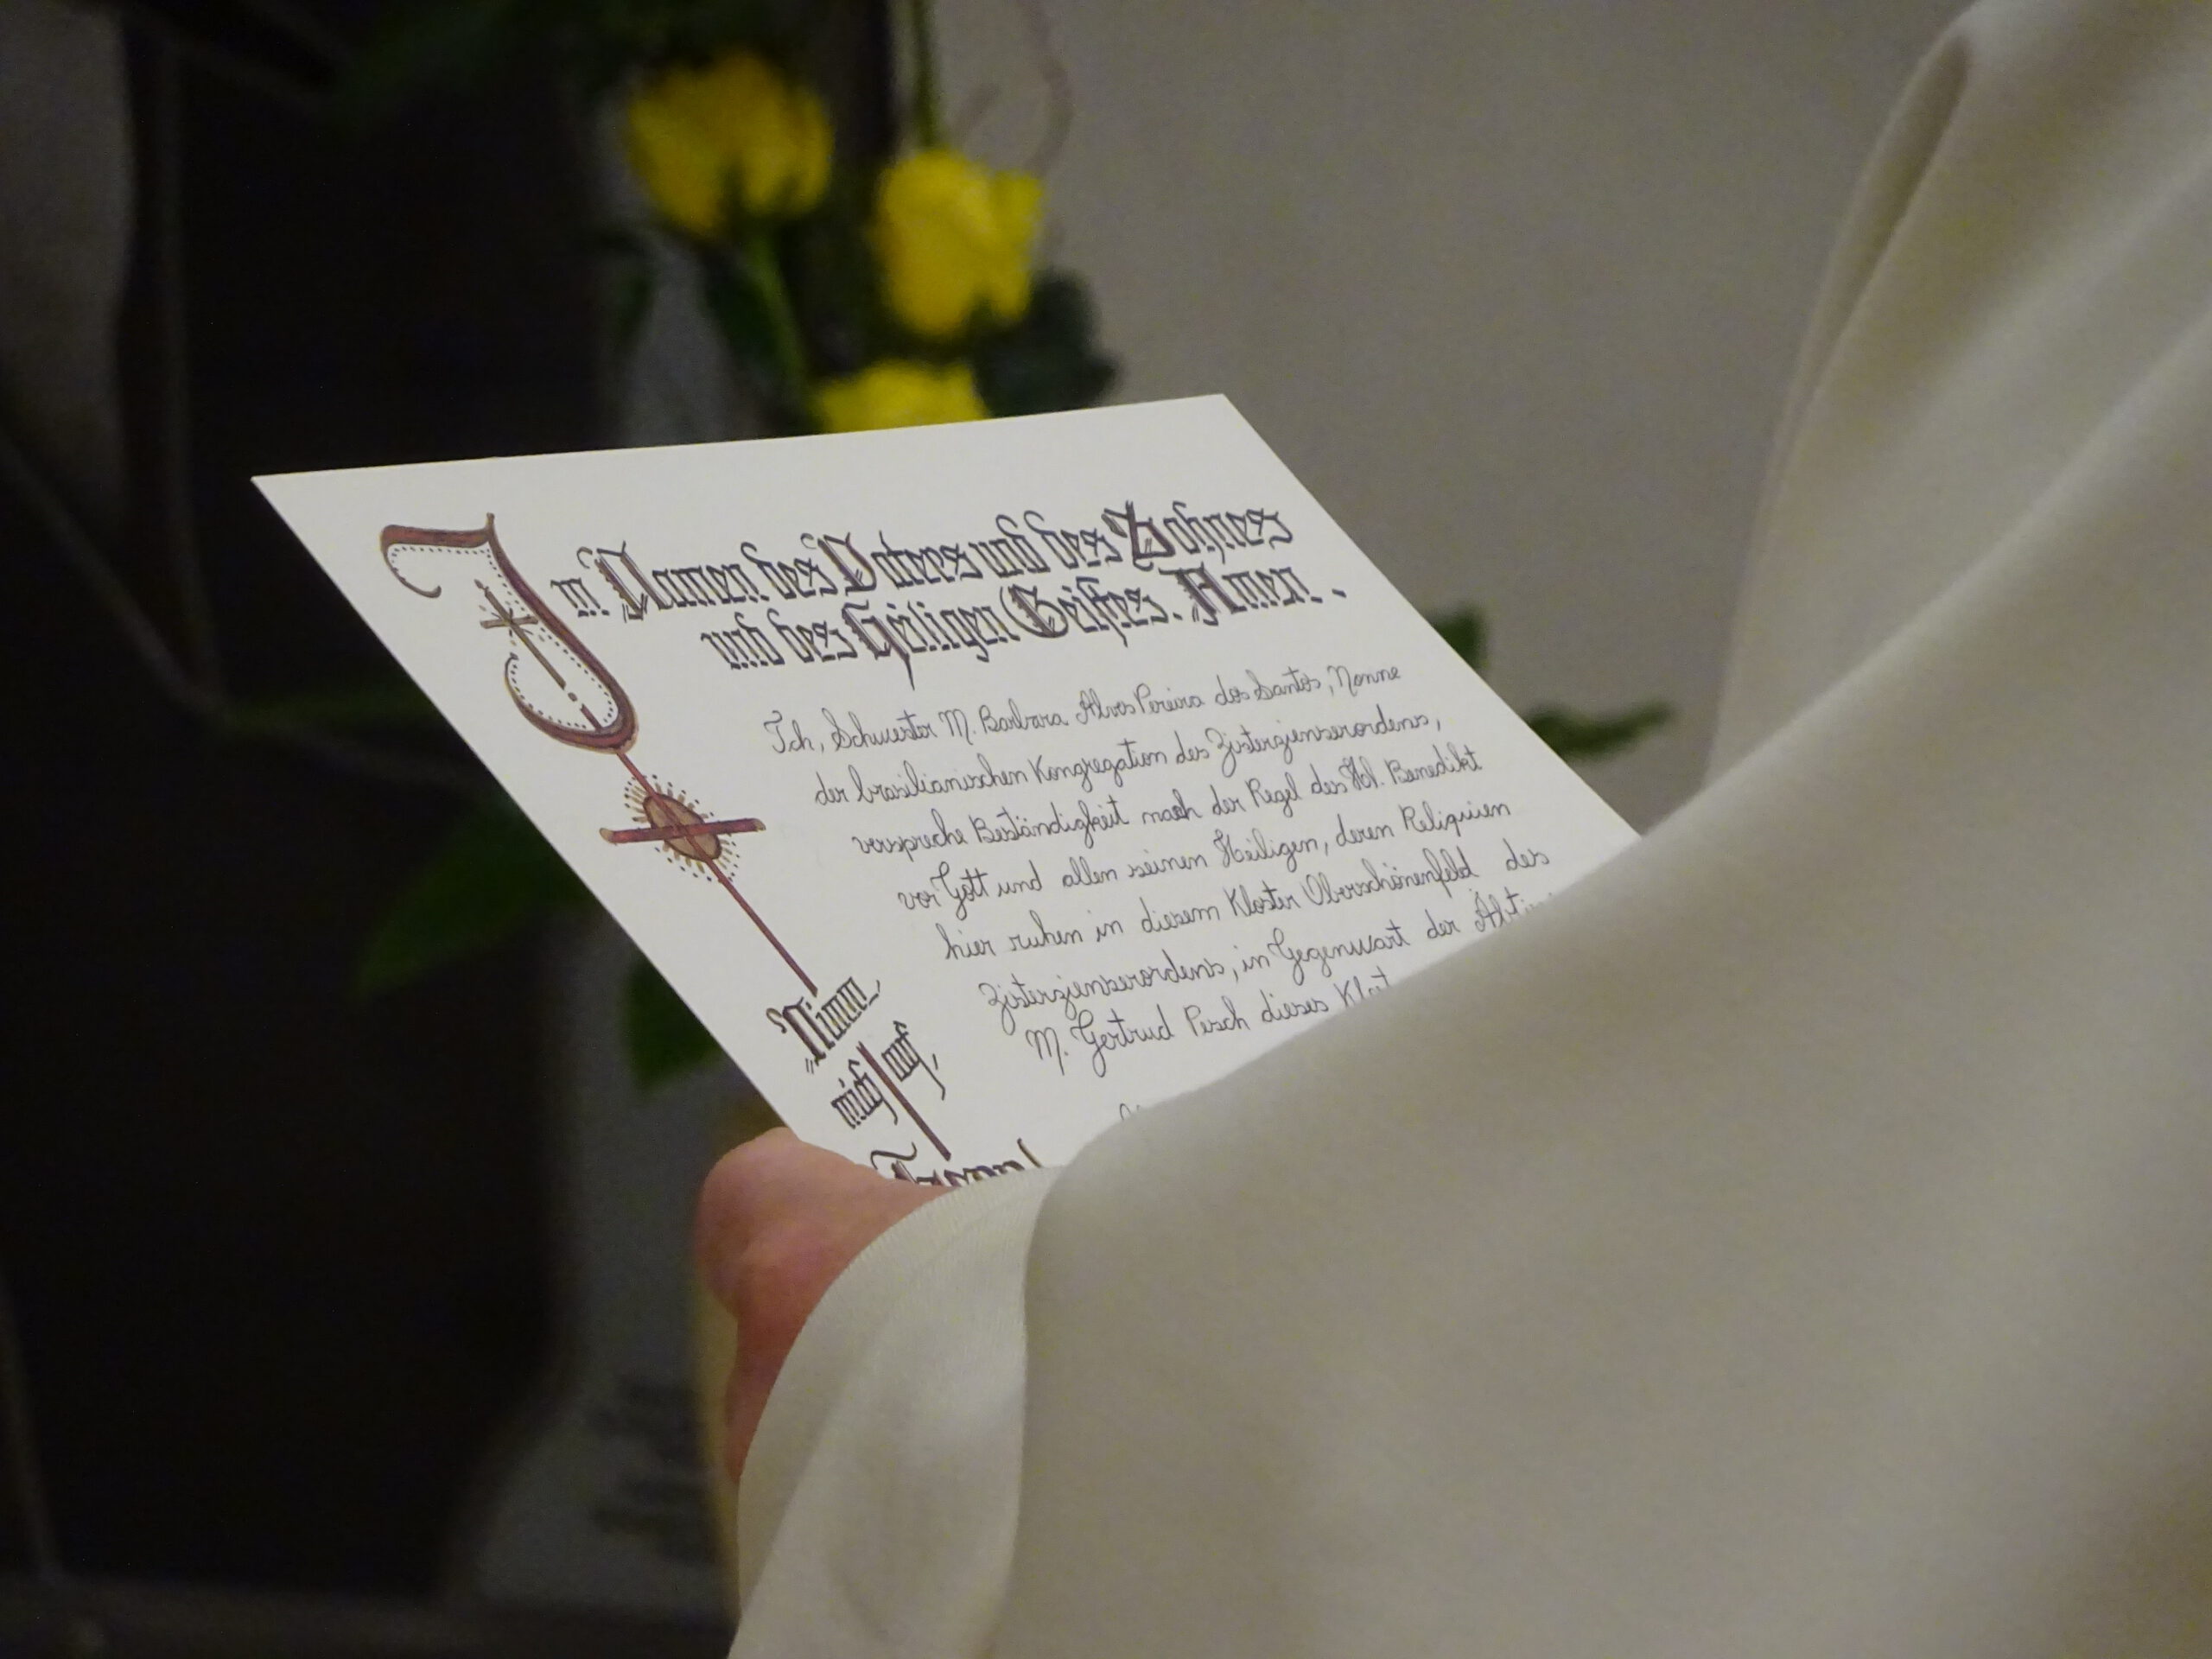 Im Namen des Vaters und des Sohnes
und des Heiligen Geistes. Amen.
Ich, Schwester M. Barbara Alves Pereira dos Santos, Nonne
der brasilianischen Kongregation des Zisterzienserordens,
verspreche Beständigkeit nach der Regel des Hl. Benedikt
vor Gott und allen seinen Heiligen, deren Reliquien
hier ruhen in diesem Kloster Oberschönenfeld des
Zisterzienserordens, in Gegenwart der
M. Gertrud Pesch dieses
„Nimm
mich auf,